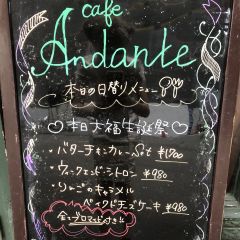 cafe
Andante
本日の日替りメニュー
♡本日大福生誕祭♡
・バターチキンカレーSet ¥1700
・ウィークエンドシトロン ¥980
・りんごのキャラメル
ベイクドチーズケーキ ¥980
全てブロマイド付き!!